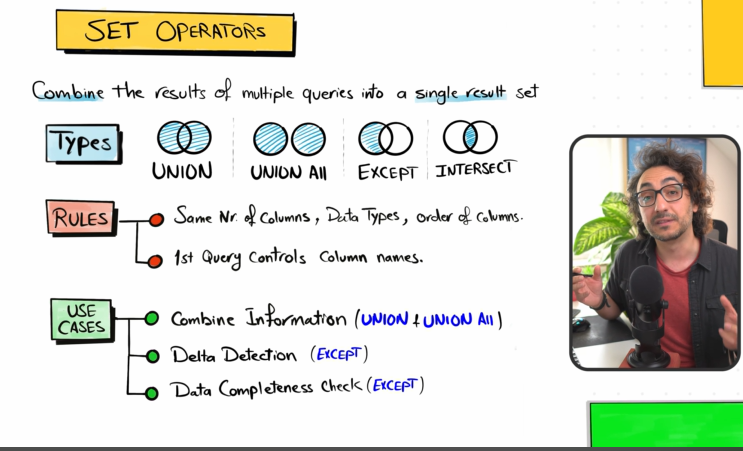 SET OPERATORS
Combine the results of multiple queries into a single result set
Types
UNION
UNION All
EXCEPT
INTERSECT
RULES
Same Nr. of Columns, Data Types, order of columns.
1st Query Controls Column names.
USE CASES
Combine Information (UNION + UNION All)
Delta Detection (EXCEPT)
Data Completeness Check (EXCEPT)